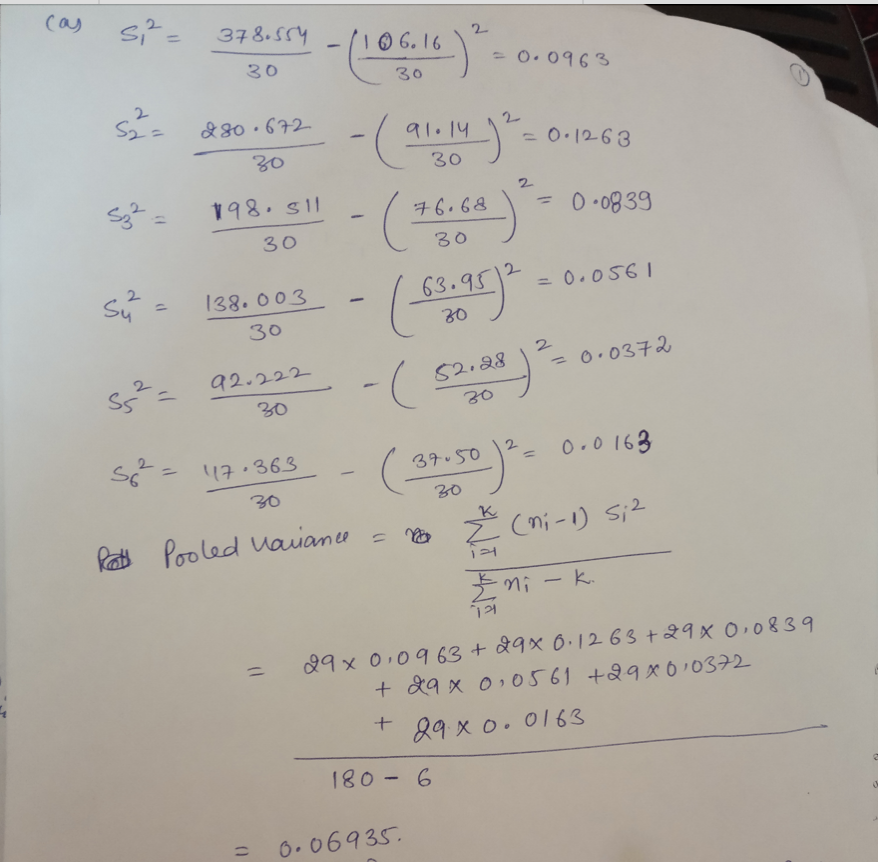 (a) S₁² = 378.554/30 - (106.16/30)² = 0.0963
①
S₂² = 280.672/30 - (91.14/30)² = 0.1263
S₃² = 198.511/30 - (76.68/30)² = 0.0839
S₄² = 138.003/30 - (63.95/30)² = 0.0561
S₅² = 92.222/30 - (52.28/30)² = 0.0372
S₆² = 47.363/30 - (37.50/30)² = 0.0163
Pooled Variance = Σᵢ₌₁ᵏ (nᵢ-1) Sᵢ² / Σᵢ₌₁ᵏ nᵢ - k.
= 29 x 0.0963 + 29 x 0.1263 + 29 x 0.0839
+ 29 x 0.0561 + 29 x 0.0372
+ 29 x 0.0163
180 - 6
= 0.06935.